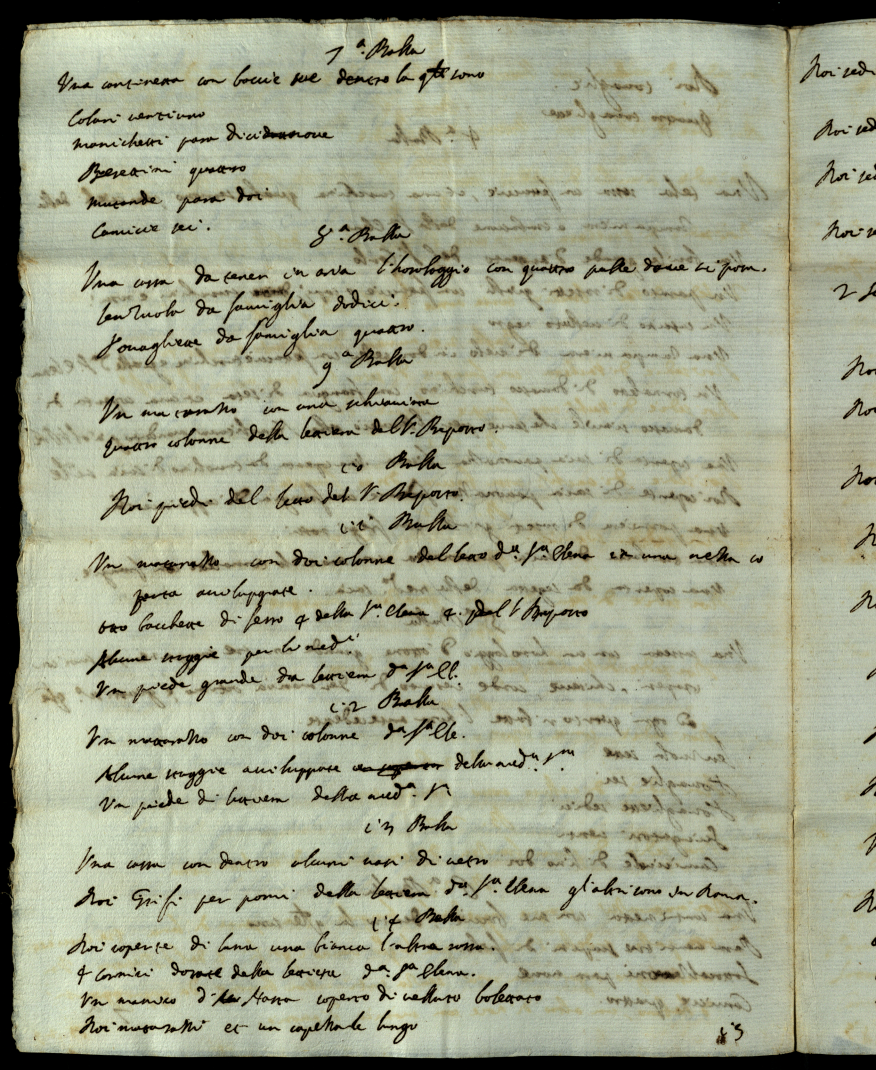 7.ª Balla
Una cantinetta con boccie sue dentro la q.le sono
Colari ventiuno
manichetti para dicidannove
Berettini quattro
mutande para doi
Camicie sei.
8.ª Balla
Una cassa da tener in aria l'horologgio con quattro palle dove si pon.
lenzuola da famiglia dodici.
Tovagliette da famiglia quattro.
9.ª Balla
Un mattaratto con una schiavina
Quattro colonne della lettiera del S.r Preposto.
10 Balla
Doi piedi del letto del S.r Preposto.
11 Balla
Un mataratto con doi colonne del letto d.a S.ra Elena in una nella co
perta aviluppate.
otto bacchette di ferro 4 della S.ra Elena 4. del S.r Preposto
Alcune staggie per la med.
Un piede grande da lettiera d.a S.ra El.
12 Balla
Un mattaratto con doi colonne d.a S.ra Ele.
Alcune staggie aviluppate della med.a S.ra
Un piede di lettiera della med.a S.ra
13 Balla
Una cassa con dentro alcuni vasi di vetro
Doi Grifi per pomi della lettiera d.a S.ra Elena gl'altri sono in Roma.
14 Balla
Doi coperte di lana una bianca l'altra rossa.
4 cornici dorate della lettiera d.a S.ra Elena.
Un manico d' coperto di velluto bolettato
Doi mataratti et un capezzale lungo
15